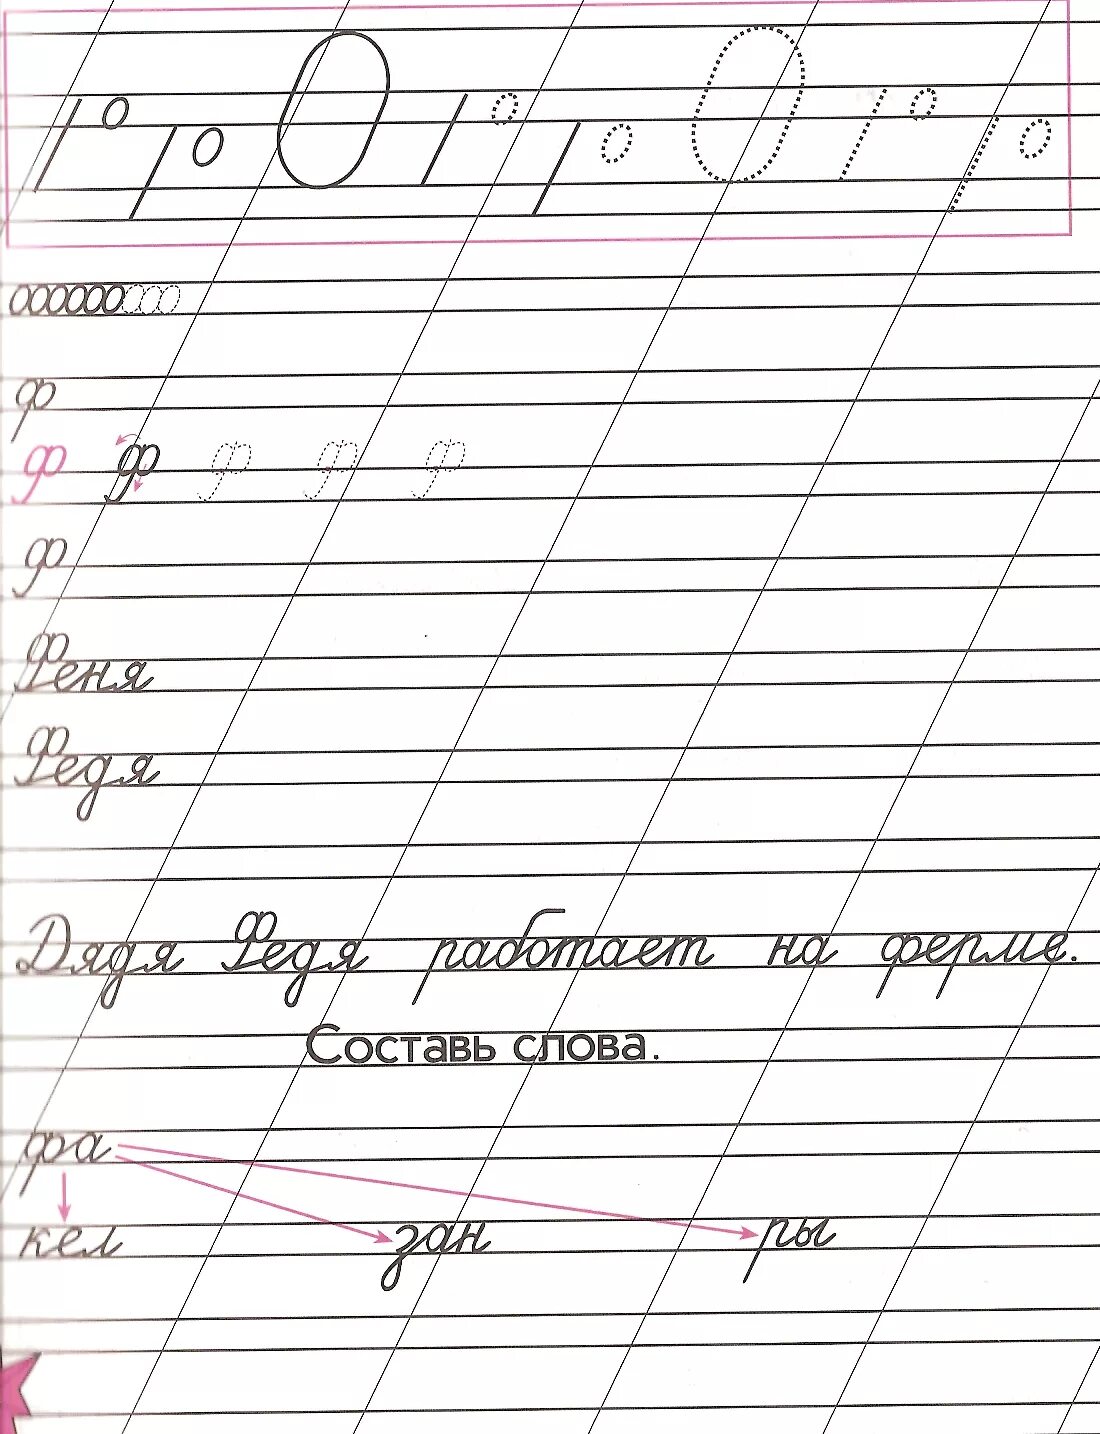 ф
Ф Ф Ф Ф Ф
Ф
Феня
Федя
Дядя Федя работает на ферме.
Составь слова.
фа
кел зан ры